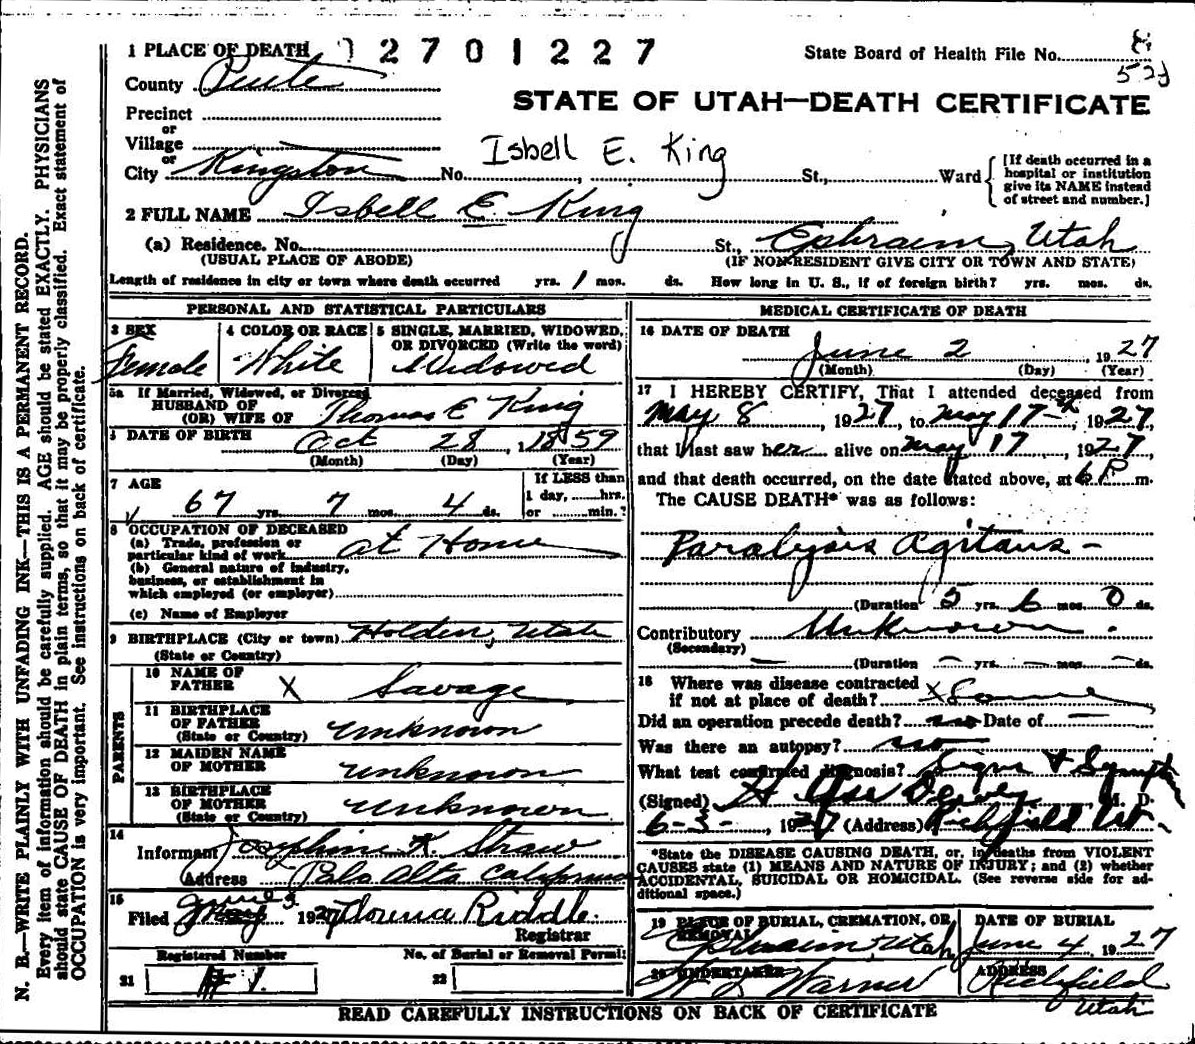 1 PLACE OF DEATH 2701227 State Board of Health File No.
County Piute
STATE OF UTAH—DEATH CERTIFICATE
Precinct
or
Village
or
City Kingston No. St., Ward
Isbell E. King
[If death occurred in a
hospital or institution
give its NAME instead
of street and number.]
2 FULL NAME Isbell E King
(a) Residence. No. St., Ephraim, Utah
(USUAL PLACE OF ABODE) (IF NON-RESIDENT GIVE CITY OR TOWN AND STATE)
Length of residence in city or town where death occurred yrs. 1 mos. ds. How long in U. S., if of foreign birth? yrs. mos. ds.
PERSONAL AND STATISTICAL PARTICULARS
3 SEX 4 COLOR OR RACE 5 SINGLE, MARRIED, WIDOWED,
OR DIVORCED (Write the word)
Female White Widowed
5a If Married, Widowed, or Divorced
HUSBAND OF
(OR) WIFE OF Thomas E King
6 DATE OF BIRTH Oct 28, 1859
(Month) (Day) (Year)
7 AGE If LESS than
1 day, hrs.
67 yrs. 7 mos. 4 ds. or min.?
8 OCCUPATION OF DECEASED
(a) Trade, profession or
particular kind of work at Home
(b) General nature of industry,
business, or establishment in
which employed (or employer)
(c) Name of Employer
9 BIRTHPLACE (City or town) Holden, Utah
(State or Country)
PARENTS
10 NAME OF
FATHER X Savage
11 BIRTHPLACE
OF FATHER
(State or Country) unknown
12 MAIDEN NAME
OF MOTHER unknown
13 BIRTHPLACE
OF MOTHER
(State or Country) unknown
14
Informant Josephine K. Straw
Address Palo Alta California
15
Filed June 3 1927 Florence Riddle.
Registrar
Registered Number No. of Burial or Removal Permit
21 # 1. 22
MEDICAL CERTIFICATE OF DEATH
16 DATE OF DEATH
June 2, 1927
(Month) (Day) (Year)
17 I HEREBY CERTIFY, That I attended deceased from
May 8, 1927, to May 17th, 1927,
that I last saw her alive on May 17, 1927,
and that death occurred, on the date stated above, at 6 P m.
The CAUSE DEATH* was as follows:
Paralysis Agitans -
(Duration 5 yrs. 6 mos. 0 ds.
Contributory Unknown.
(Secondary)
— (Duration — yrs. — mos. — ds.
18 Where was disease contracted
if not at place of death? X
Did an operation precede death? no Date of —
Was there an autopsy? no
What test confirmed diagnosis? Signs & Symptoms
(Signed) M. D.
6-3-, 1927 (Address) Richfield Ut
*State the DISEASE CAUSING DEATH, or, in deaths from VIOLENT
CAUSES state (1) MEANS AND NATURE OF INJURY; and (2) whether
ACCIDENTAL, SUICIDAL OR HOMICIDAL. (See reverse side for ad-
ditional space.)
19 PLACE OF BURIAL, CREMATION, OR
REMOVAL DATE OF BURIAL
Ephraim, Utah June 4 1927
20 UNDERTAKER ADDRESS
Warner Richfield
Utah
READ CAREFULLY INSTRUCTIONS ON BACK OF CERTIFICATE
N. B.—WRITE PLAINLY WITH UNFADING INK—THIS IS A PERMANENT RECORD.
Every item of information should be carefully supplied. AGE should be stated EXACTLY. PHYSICIANS
should state CAUSE OF DEATH in plain terms, so that it may be properly classified. Exact statement of
OCCUPATION is very important. See instructions on back of certificate.